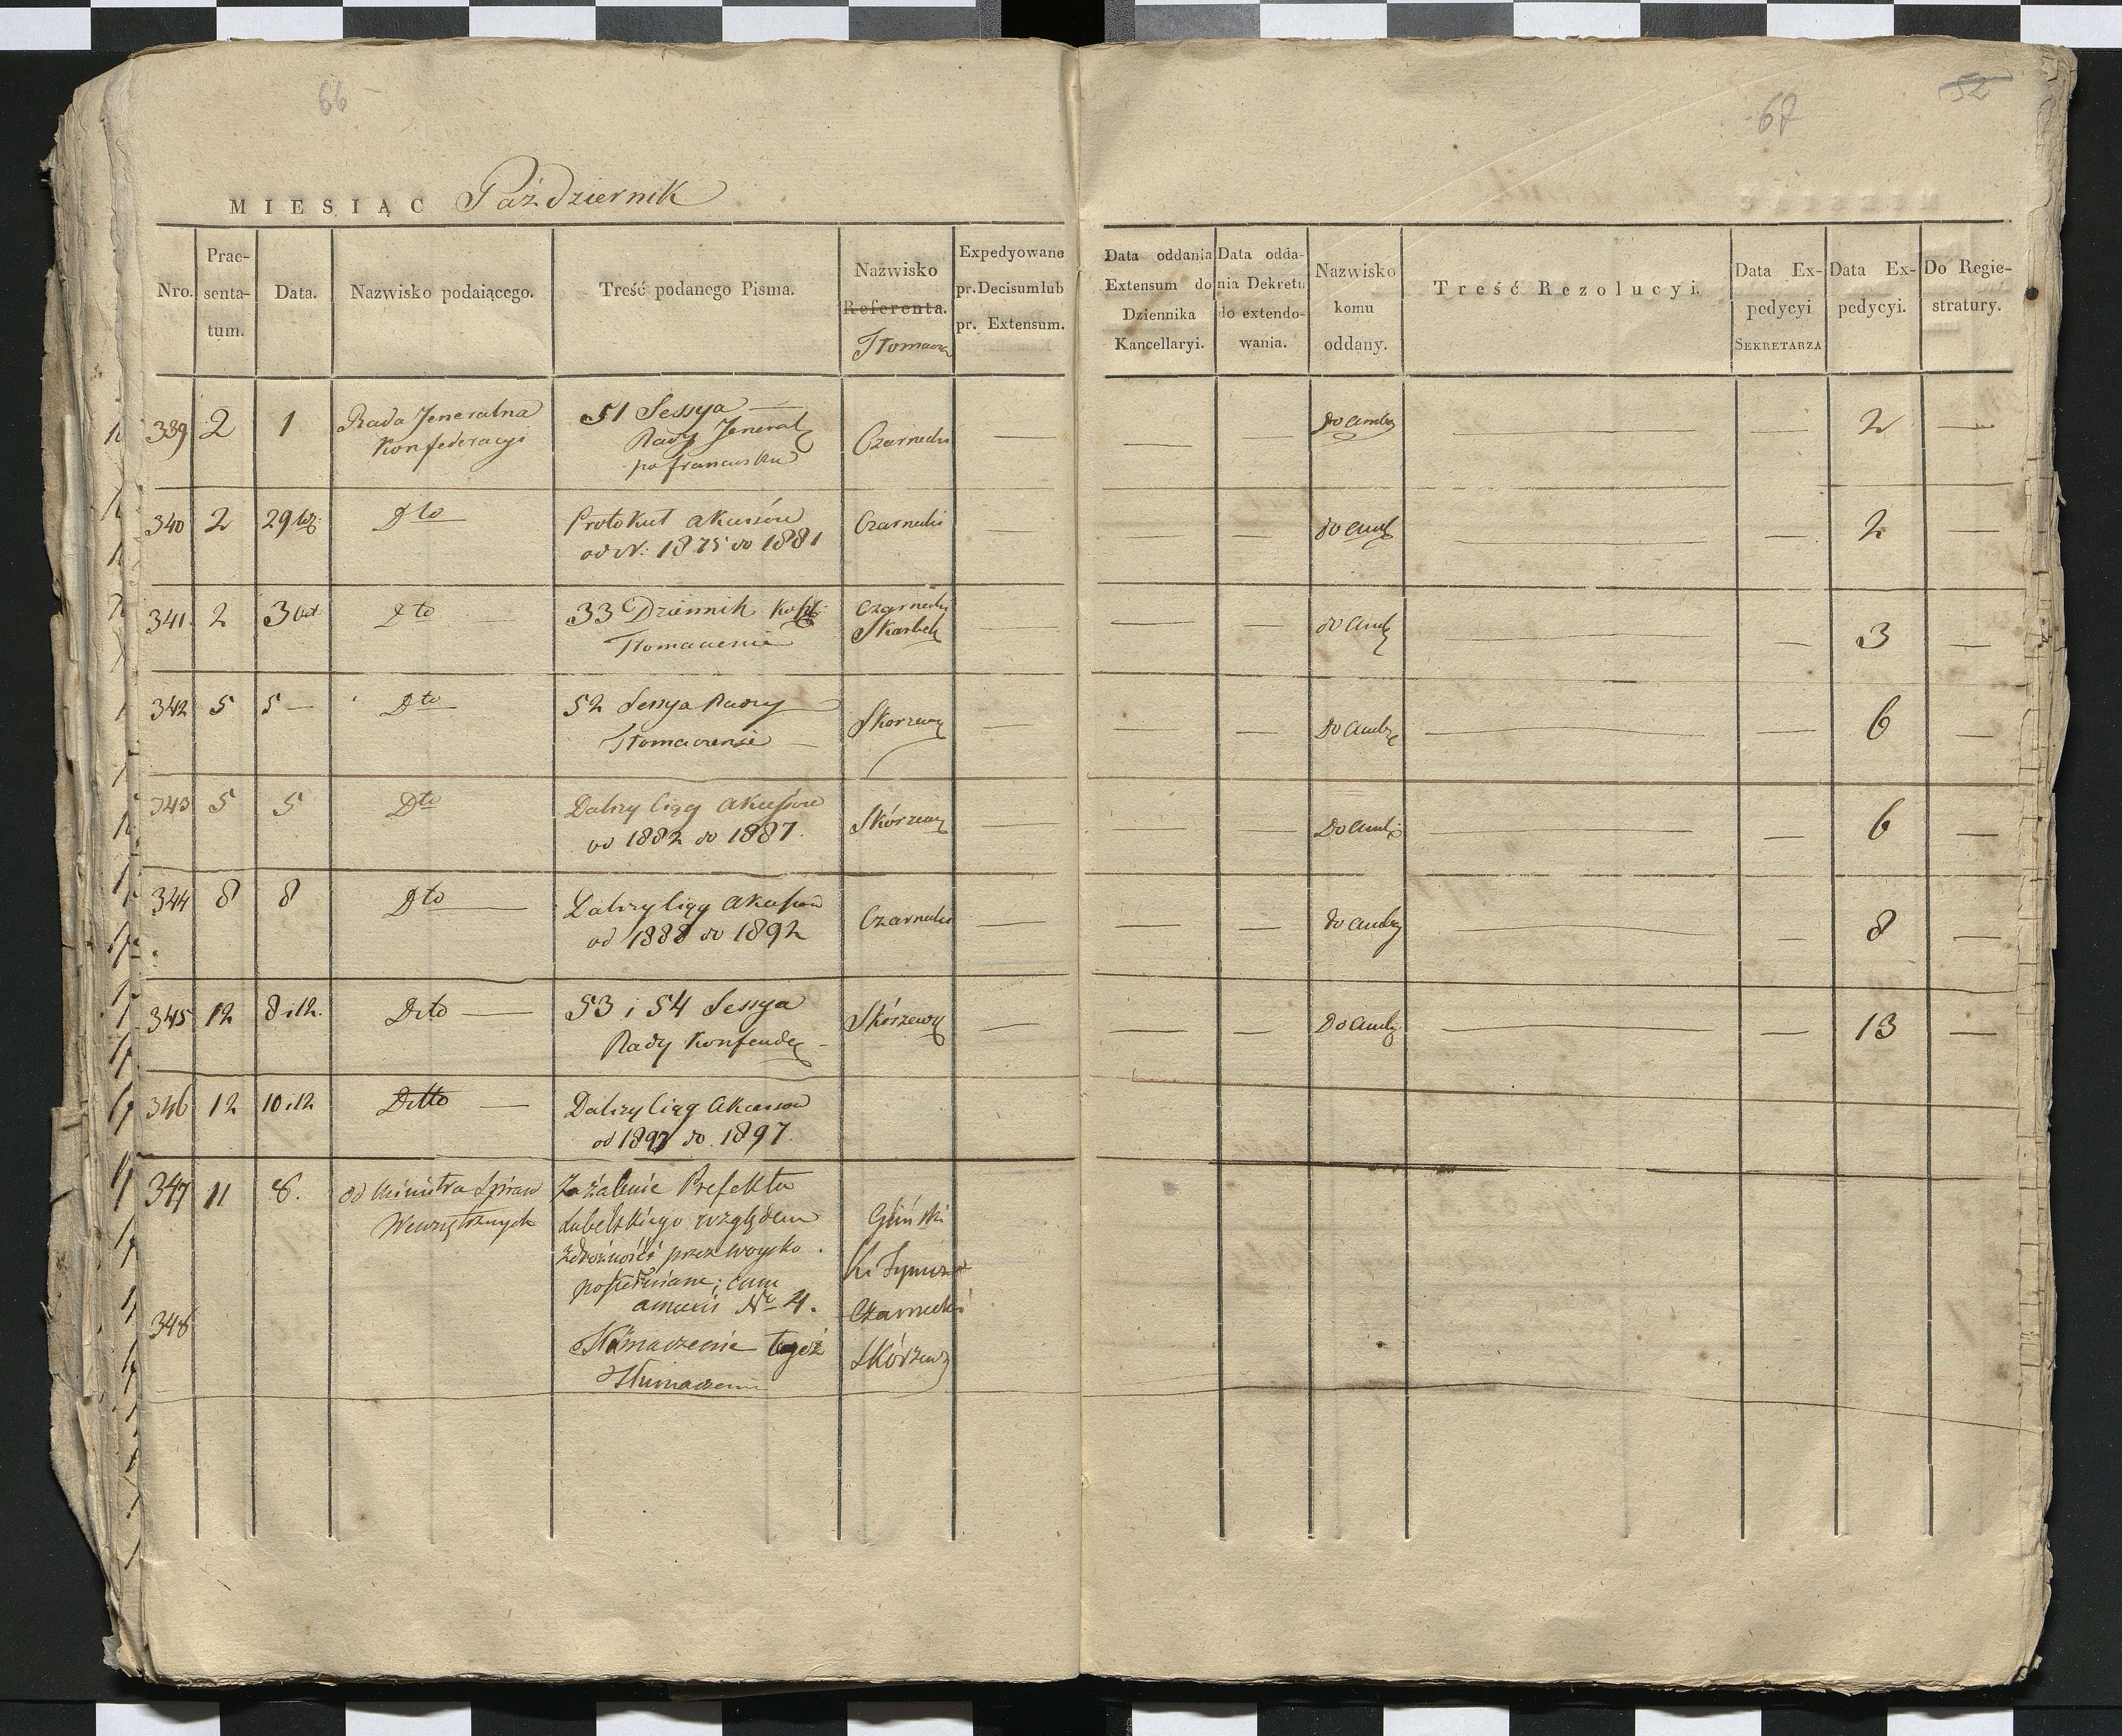 66
MIESIĄC Październik
Nro.
Prae-
senta-
tum.
Data.
Nazwisko podaiącego.
Treść podanego Pisma.
Nazwisko
Referenta.
Tłomacza
Expedyowane
pr. Decisum lub
pr. Extensum.
339 2 1 Rada Jeneralna
Konfederacyi
51 Sessya —
Rady Jeneral
po francusku
Czarnecki —
340 2 29 Dto
Protokuł akcessów
od N: 1875 do 1881
Czarnecki —
341 2 3 Oct Dto
33 Dziennik
Tłomaczenie
Czarnecki
Skarbek —
342 5 5 — Dto
52 Sessya Rady
Tłomaczenie —
Skorzews —
343 5 5 Dto
Dalszy Ciąg akcessów
od 1882 do 1887.
Skórzews —
344 8 8 Dto —
Dalszy Ciąg akcessów
od 1888 do 1892
Czarnecki —
345 12 8 i 12. Dito —
53 i 54 Sessya
Rady
Skórzews —
346 12 10 i 12 Ditto —
Dalszy Ciąg Akcessow
od 1893 do 1897.
347 11 8. od Ministra Spraw
Wewnętrznych
Zażalenie Prefekta
Lubelskiego względem
przez woysko
cum
annexis No 4.
Gliński
Czarnecki
Skórzews
348
Tłomaczenie tegoż
Tłumaczenie
52
67
Data oddania
Extensum do
Dziennika
Kancellaryi.
Data odda-
nia Dekretu
do extendo-
wania.
Nazwisko
komu
oddany.
Treść Rezolucyi.
Data Ex-
pedycyi
SEKRETARZA
Data Ex-
pedycyi.
Do Regie-
stratury.
— — do Amb — — 2 —
— — do Amb — — 2 —
— — do Amb — — 3 —
— — Do Amb — — 6 —
— — Do Amb — — 6 —
— — do Amb — — 8 —
— — Do Amb — — 13 —